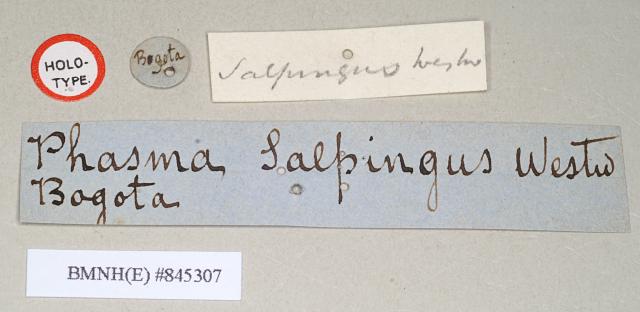 HOLO-
TYPE.
Bogota
Salpingus Westw
Phasma Salpingus Westw
Bogota
BMNH(E) #845307